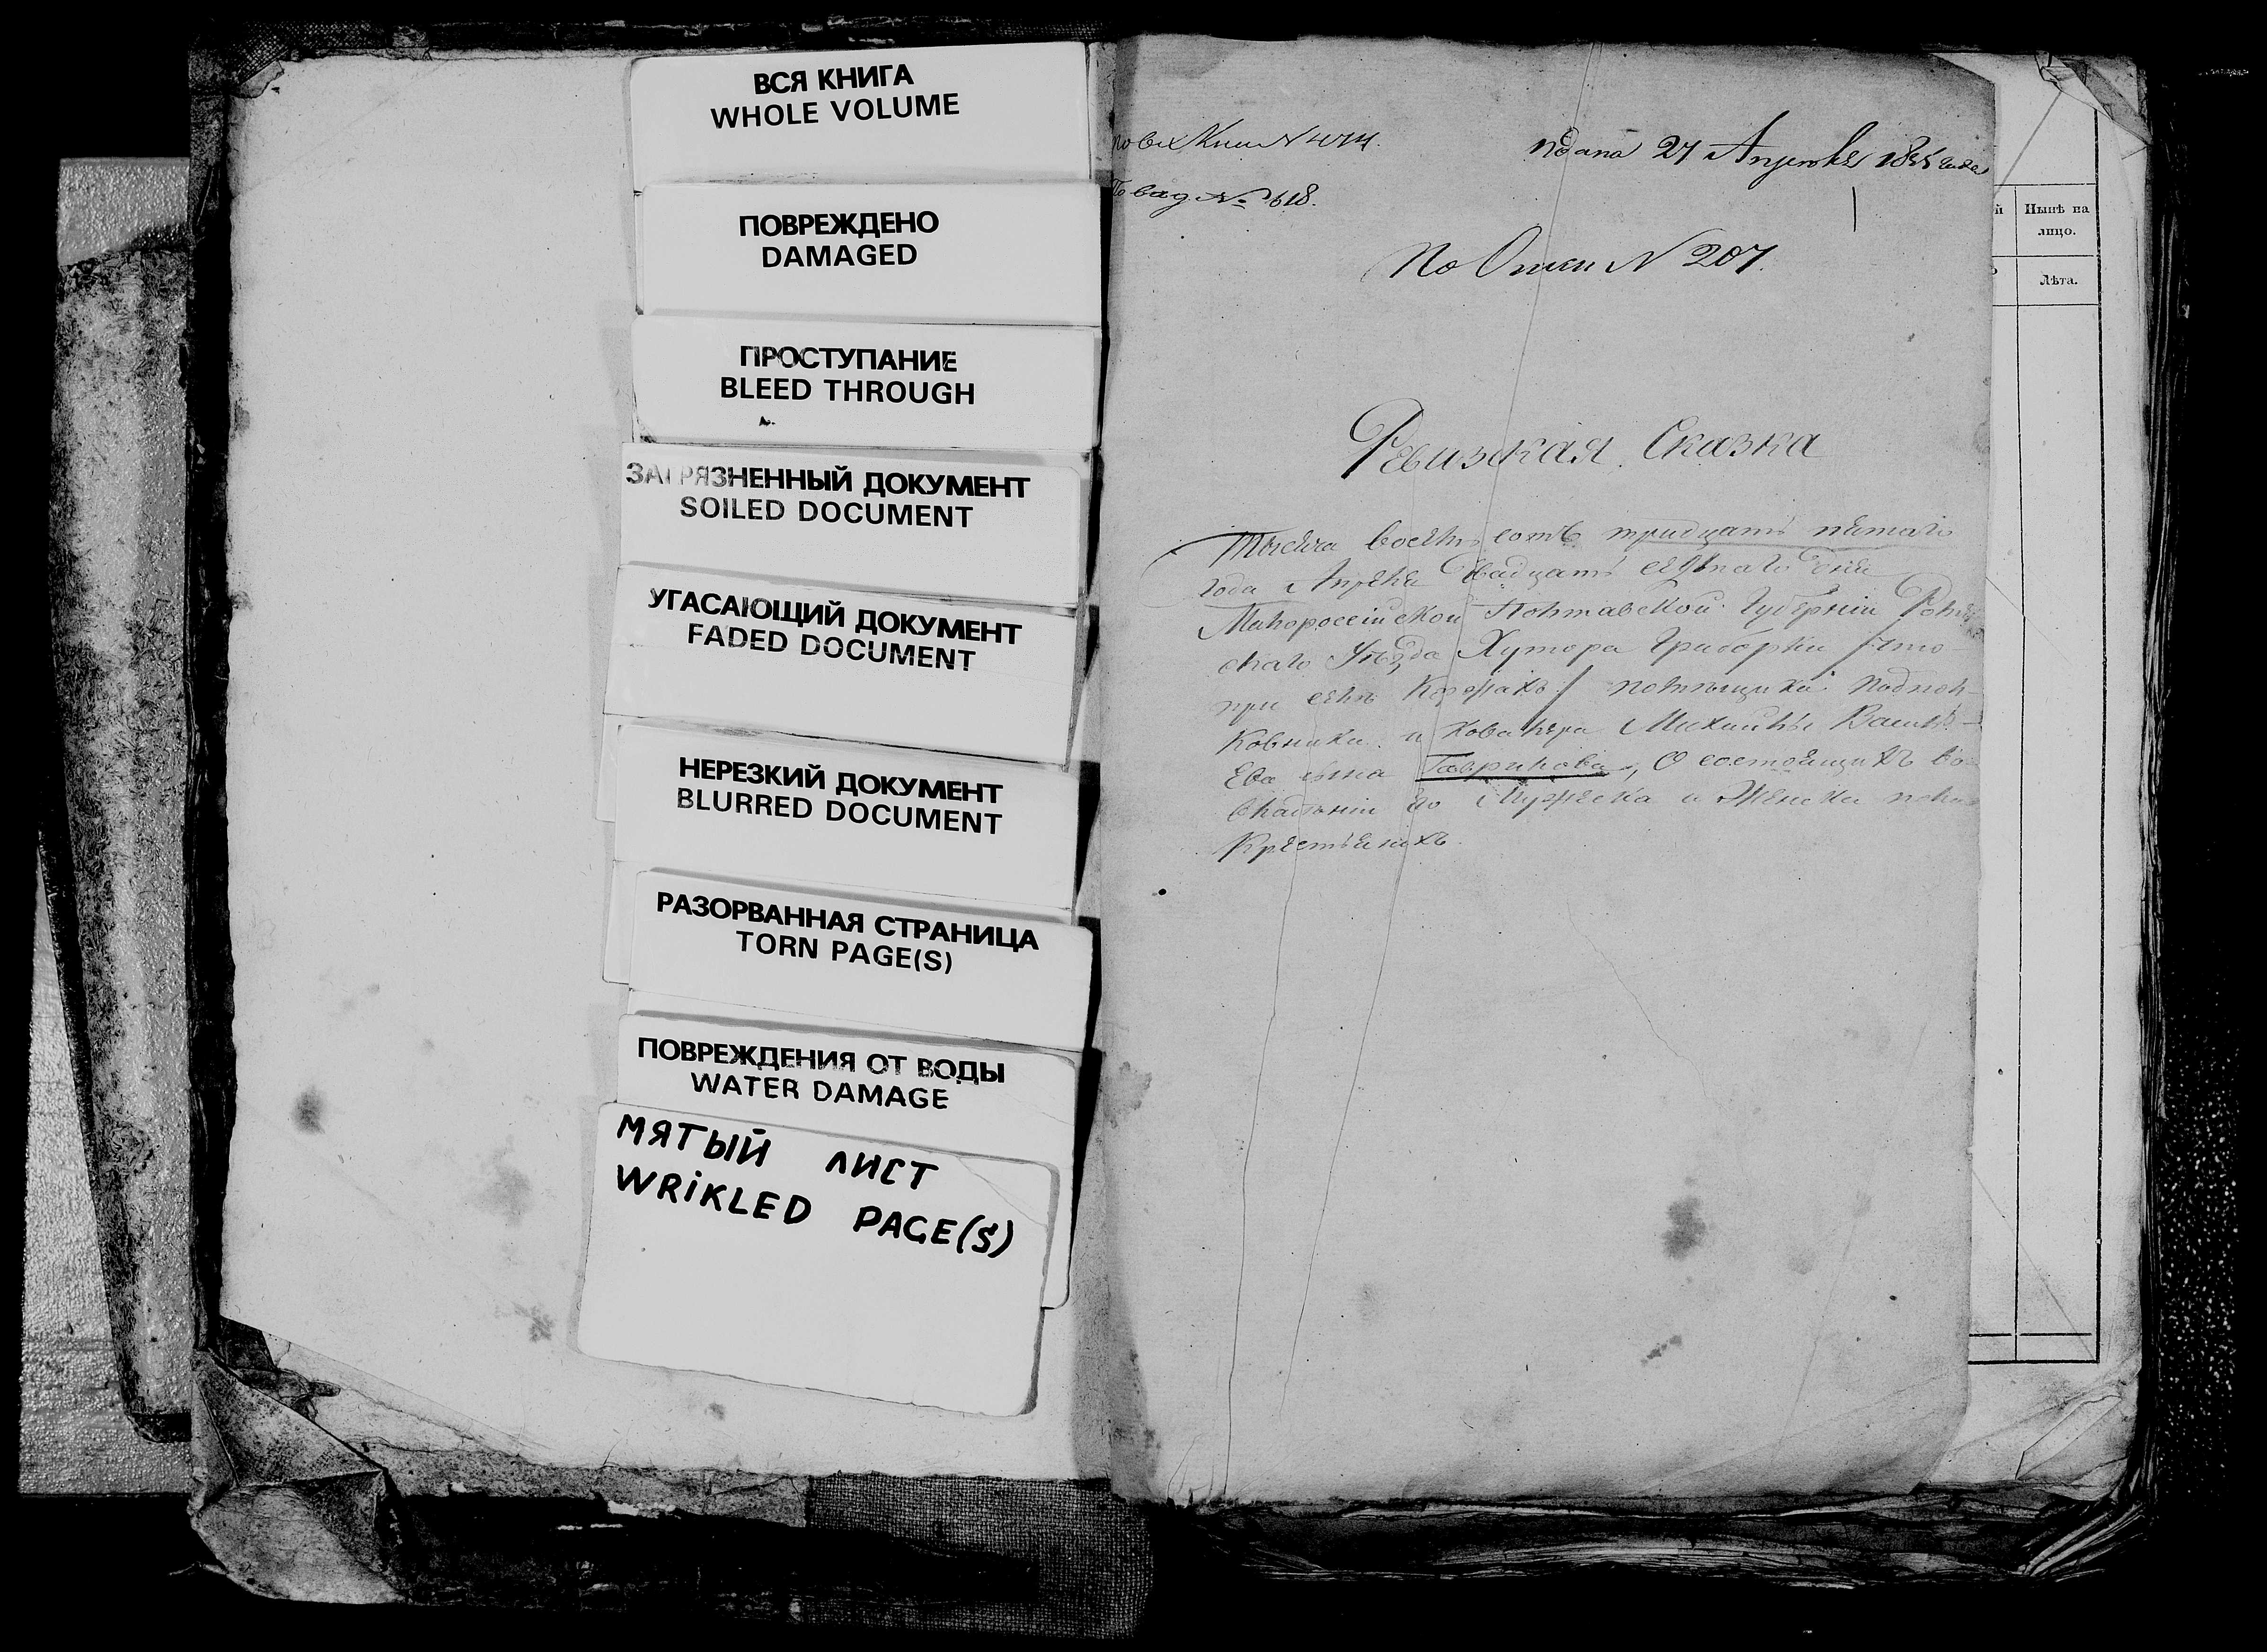 ВСЯ КНИГА
WHOLE VOLUME
ПОВРЕЖДЕНО
DAMAGED
ПРОСТУПАНИЕ
BLEED THROUGH
ЗАГРЯЗНЕННЫЙ ДОКУМЕНТ
SOILED DOCUMENT
УГАСАЮЩИЙ ДОКУМЕНТ
FADED DOCUMENT
НЕРЕЗКИЙ ДОКУМЕНТ
BLURRED DOCUMENT
РАЗОРВАННАЯ СТРАНИЦА
TORN PAGE(S)
ПОВРЕЖДЕНИЯ ОТ ВОДЫ
WATER DAMAGE
МЯТЫЙ ЛИСТ
WRIKLED PAGE(S)
подана 27 Апреля 1835 года
№ 618.
По Описи N 207.
Ревизская Сказка
Тысяча восемь сотъ тридцать пятаго
года Апреля двадцать седьмаго дня
Малороссійской Полтавской Губерніи Ромен
скаго Уѣзда Хутора что
при селѣ помѣщика подпол
ковника и Кавалера Михаила Василь
ева сына Гаврилова, О состоящихъ во
владѣніи его Мужеска и Женска пола
Крестьянахъ.
Нынѣ на
лицо.
Лѣта.